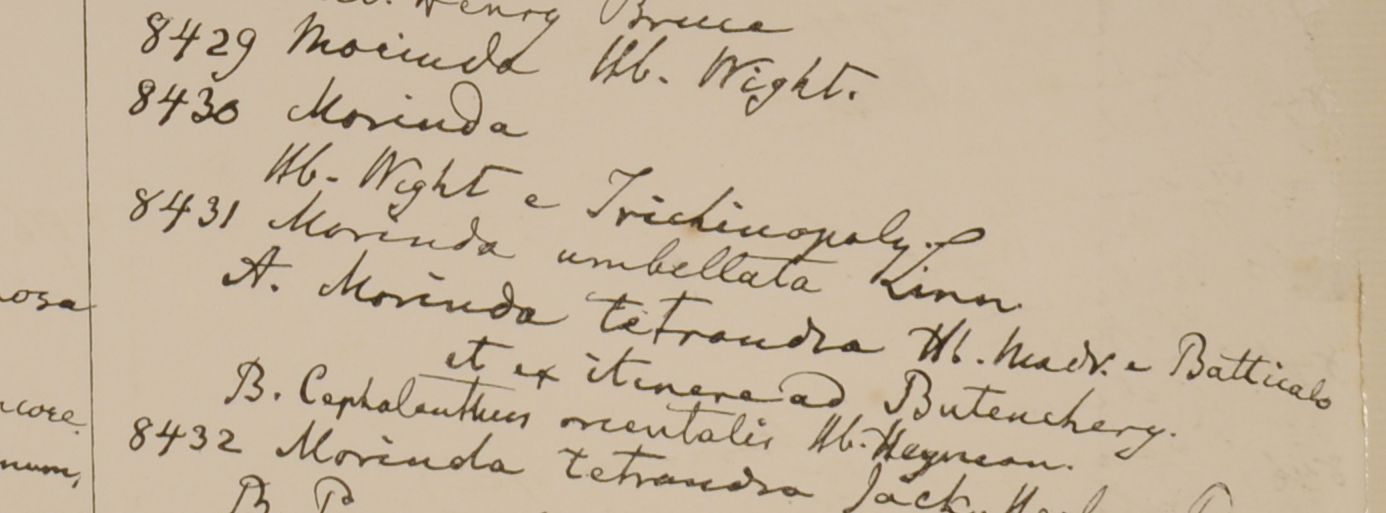 Henry Bruce
8429 Morinda Hb. Wight.
8430 Morinda
Hb. Wight e Trichinopoly.
8431 Morinda umbellata Linn.
A. Morinda tetrandra Hb. Madr. e Batticalo
et ex itinere ad Butenchery.
B. Cephalanthus orientalis Hb. Heynean.
8432 Morinda tetrandra Jack
B.
osa
core.
num,